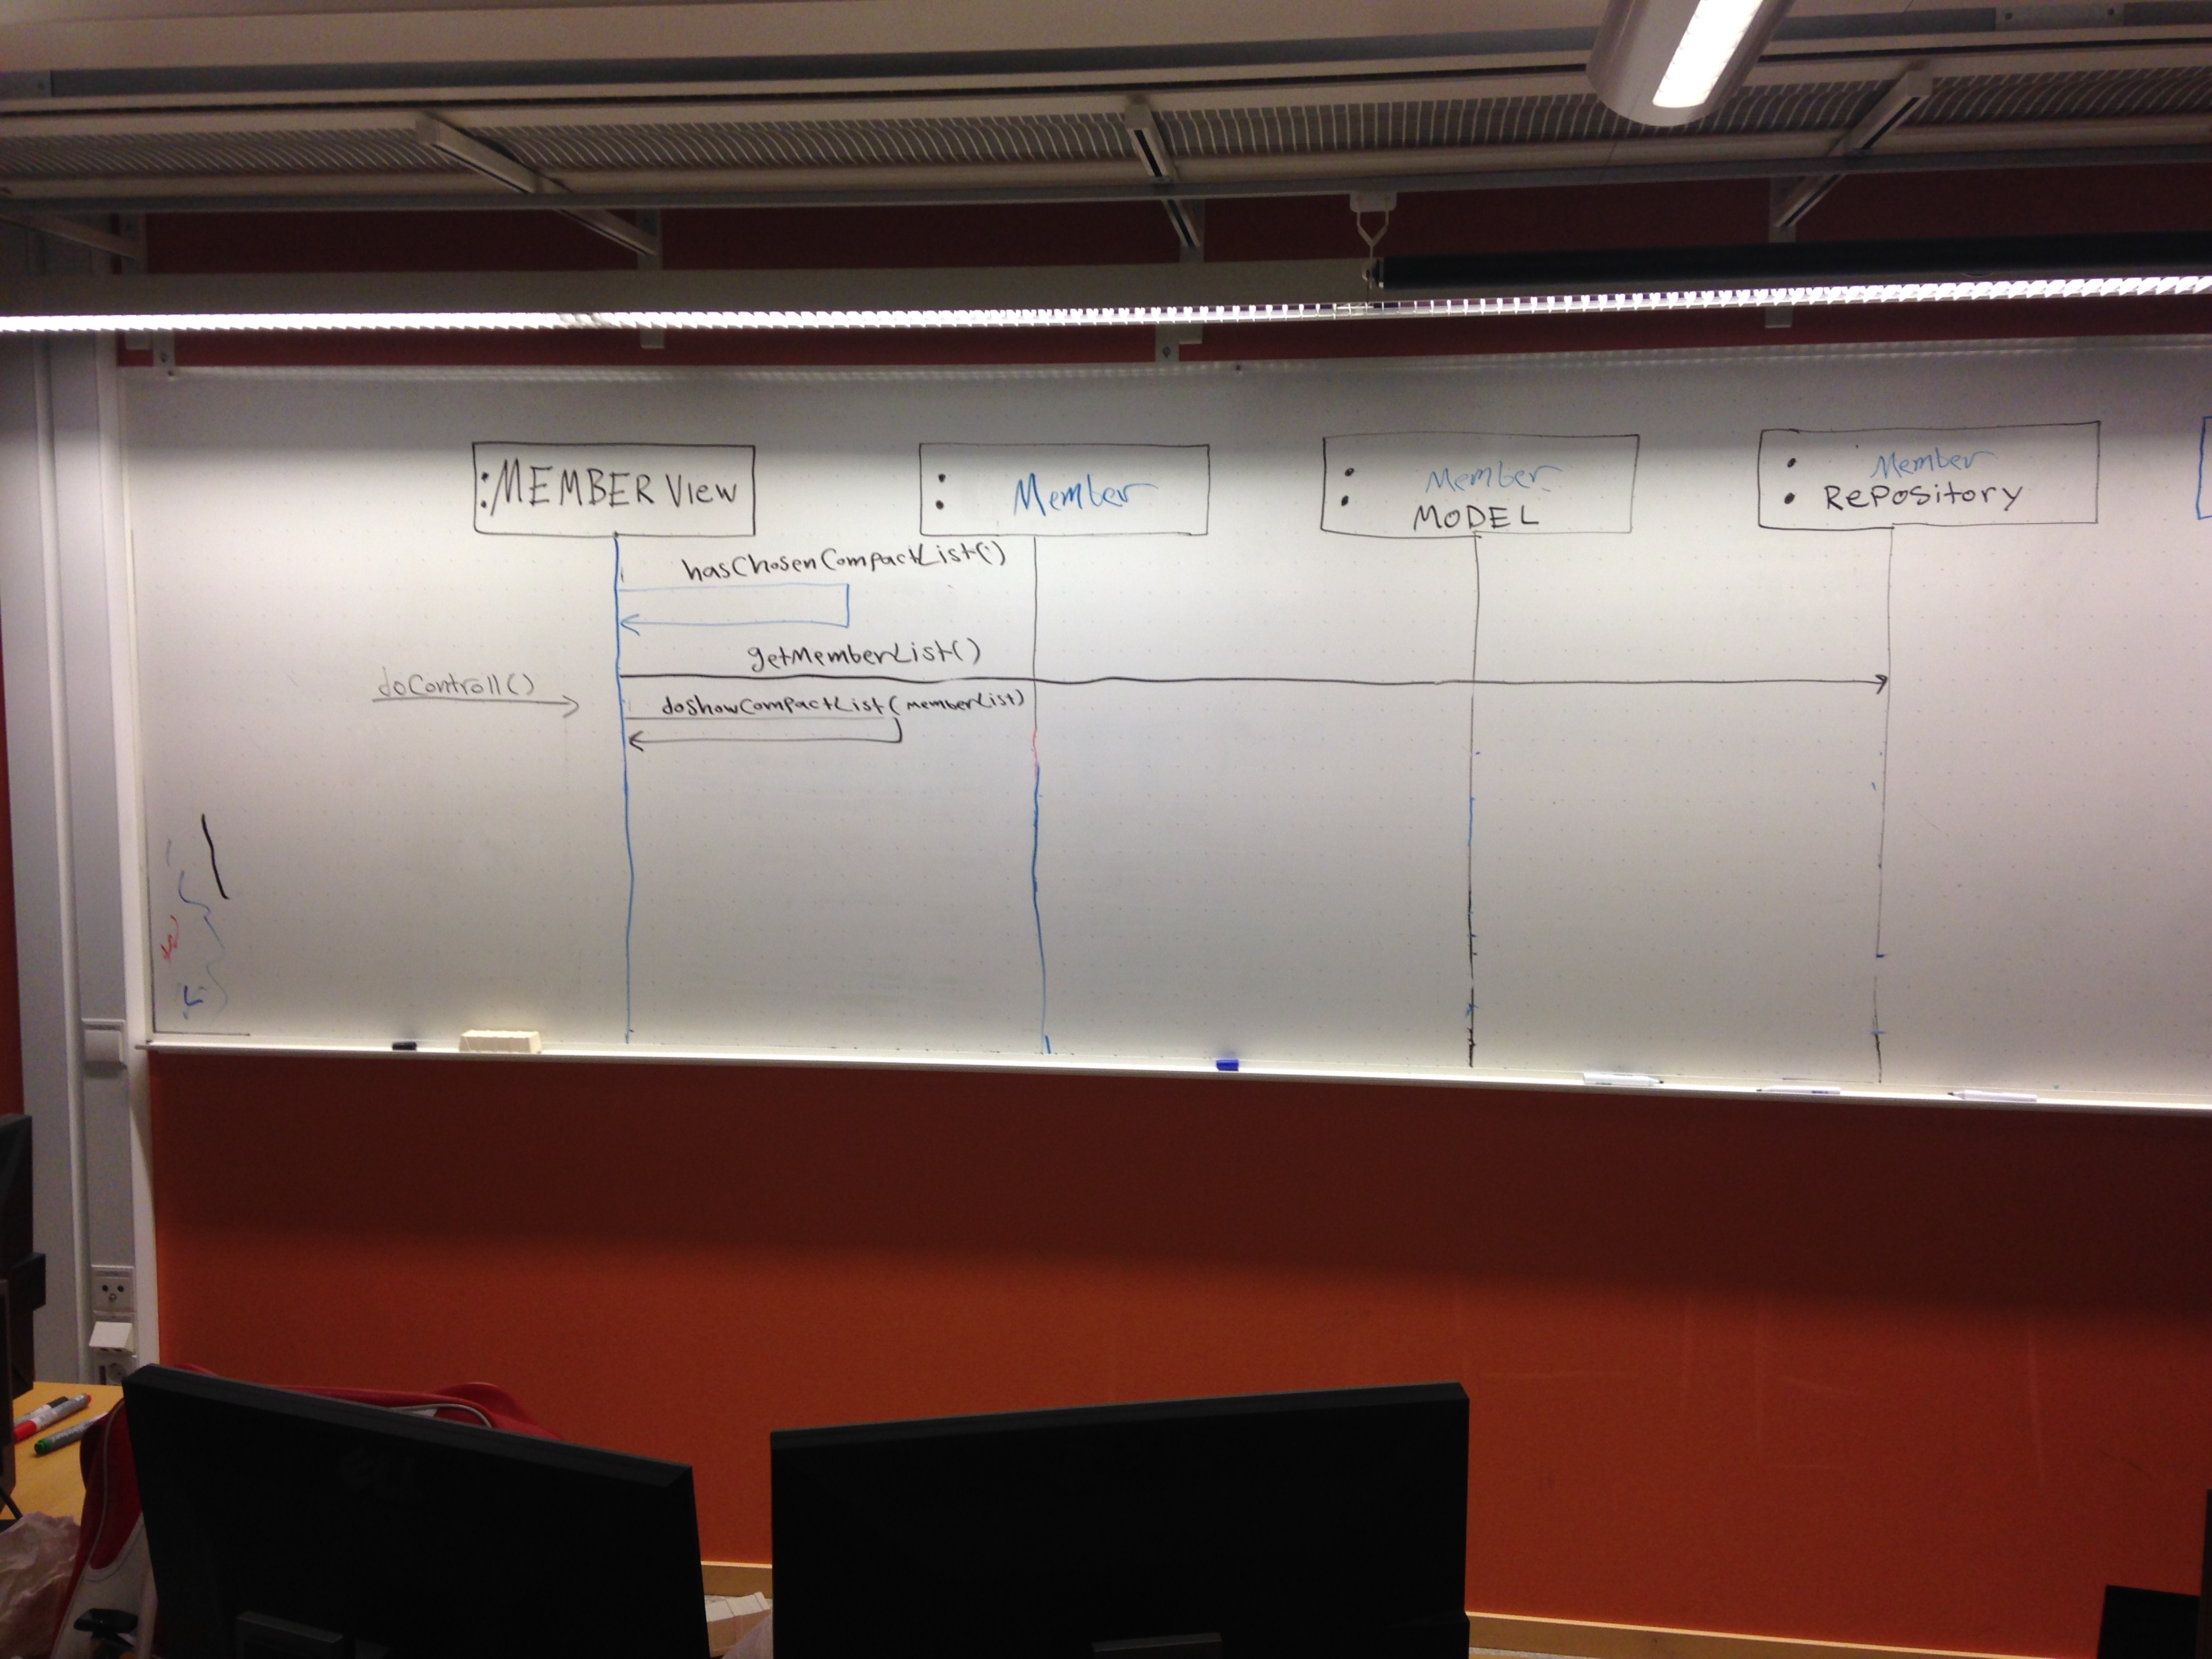 :MEMBER View
: Member
: Member
MODEL
: Member
RePository
hasChosenCompactList()
getMemberList()
doControll()
doShowCompactList(memberList)